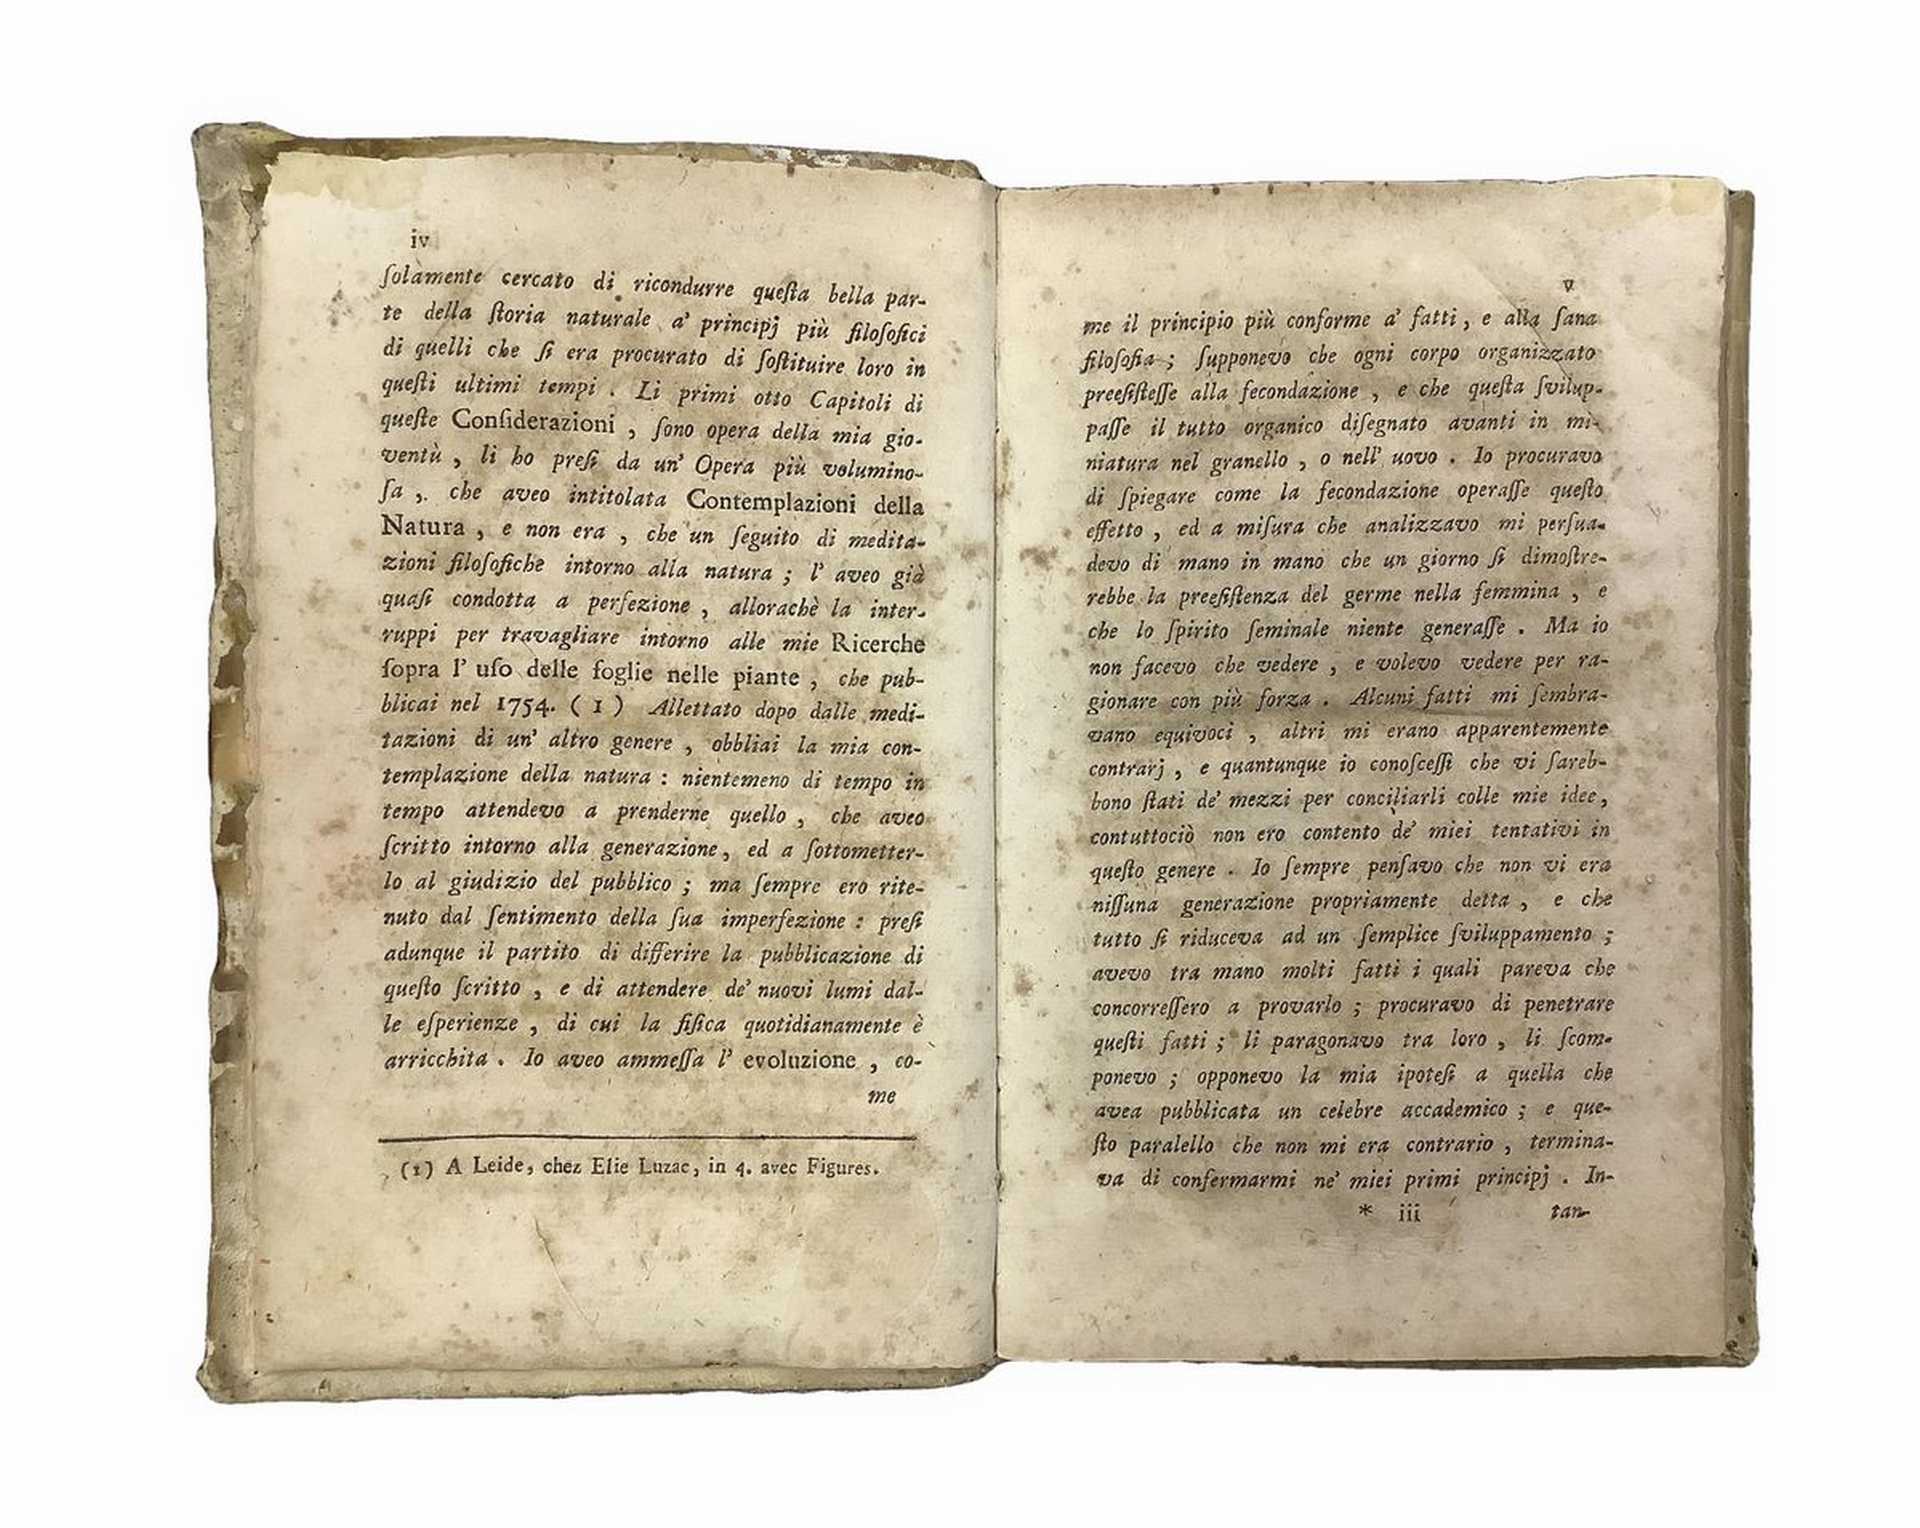 iv
ſolamente cercato di ricondurre queſta bella par-
te della ſtoria naturale a' principj più filoſofici
di quelli che ſi era procurato di ſoſtituire loro in
queſti ultimi tempi . Li primi otto Capitoli di
queſte Conſiderazioni , ſono opera della mia gio-
ventù , li ho preſi da un' Opera più volumino-
ſa , che aveo intitolata Contemplazioni della
Natura , e non era , che un ſeguito di medita-
zioni filoſofiche intorno alla natura ; l' aveo già
quaſi condotta a perfezione , allorachè la inter-
ruppi per travagliare intorno alle mie Ricerche
ſopra l' uſo delle foglie nelle piante , che pub-
blicai nel 1754. ( 1 ) Allettato dopo dalle medi-
tazioni di un' altro genere , obbliai la mia con-
templazione della natura : nientemeno di tempo in
tempo attendevo a prenderne quello , che aveo
ſcritto intorno alla generazione, ed a ſottometter-
lo al giudizio del pubblico ; ma ſempre ero rite-
nuto dal ſentimento della ſua imperfezione : preſi
adunque il partito di differire la pubblicazione di
queſto ſcritto , e di attendere de' nuovi lumi dal-
le eſperienze , di cui la fiſica quotidianamente è
arricchita . Io aveo ammeſſa l' evoluzione , co-
me
(1) A Leide, chez Elie Luzac, in 4. avec Figures.
v
me il principio più conforme a' fatti , e alla ſana
filoſofia ; ſupponevo che ogni corpo organizzato
preeſiſteſſe alla fecondazione , e che queſta ſvilup-
paſſe il tutto organico diſegnato avanti in mi-
niatura nel granello , o nell' uovo . Io procuravo
di ſpiegare come la fecondazione operaſſe queſto
effetto , ed a miſura che analizzavo mi perſua-
devo di mano in mano che un giorno ſi dimoſtre-
rebbe la preeſiſtenza del germe nella femmina , e
che lo ſpirito ſeminale niente generaſſe . Ma io
non facevo che vedere , e volevo vedere per ra-
gionare con più forza . Alcuni fatti mi ſembra-
vano equivoci , altri mi erano apparentemente
contrarj , e quantunque io conoſceſſi che vi ſareb-
bono ſtati de' mezzi per conciliarli colle mie idee,
contuttociò non ero contento de' miei tentativi in
queſto genere . Io ſempre penſavo che non vi era
niſſuna generazione propriamente detta , e che
tutto ſi riduceva ad un ſemplice ſviluppamento ;
avevo tra mano molti fatti i quali pareva che
concorreſſero a provarlo ; procuravo di penetrare
queſti fatti ; li paragonavo tra loro , li ſcom-
ponevo ; opponevo la mia ipoteſi a quella che
avea pubblicata un celebre accademico ; e que-
ſto paralello che non mi era contrario , termina-
va di confermarmi ne' miei primi principj . In-
* iii tan-